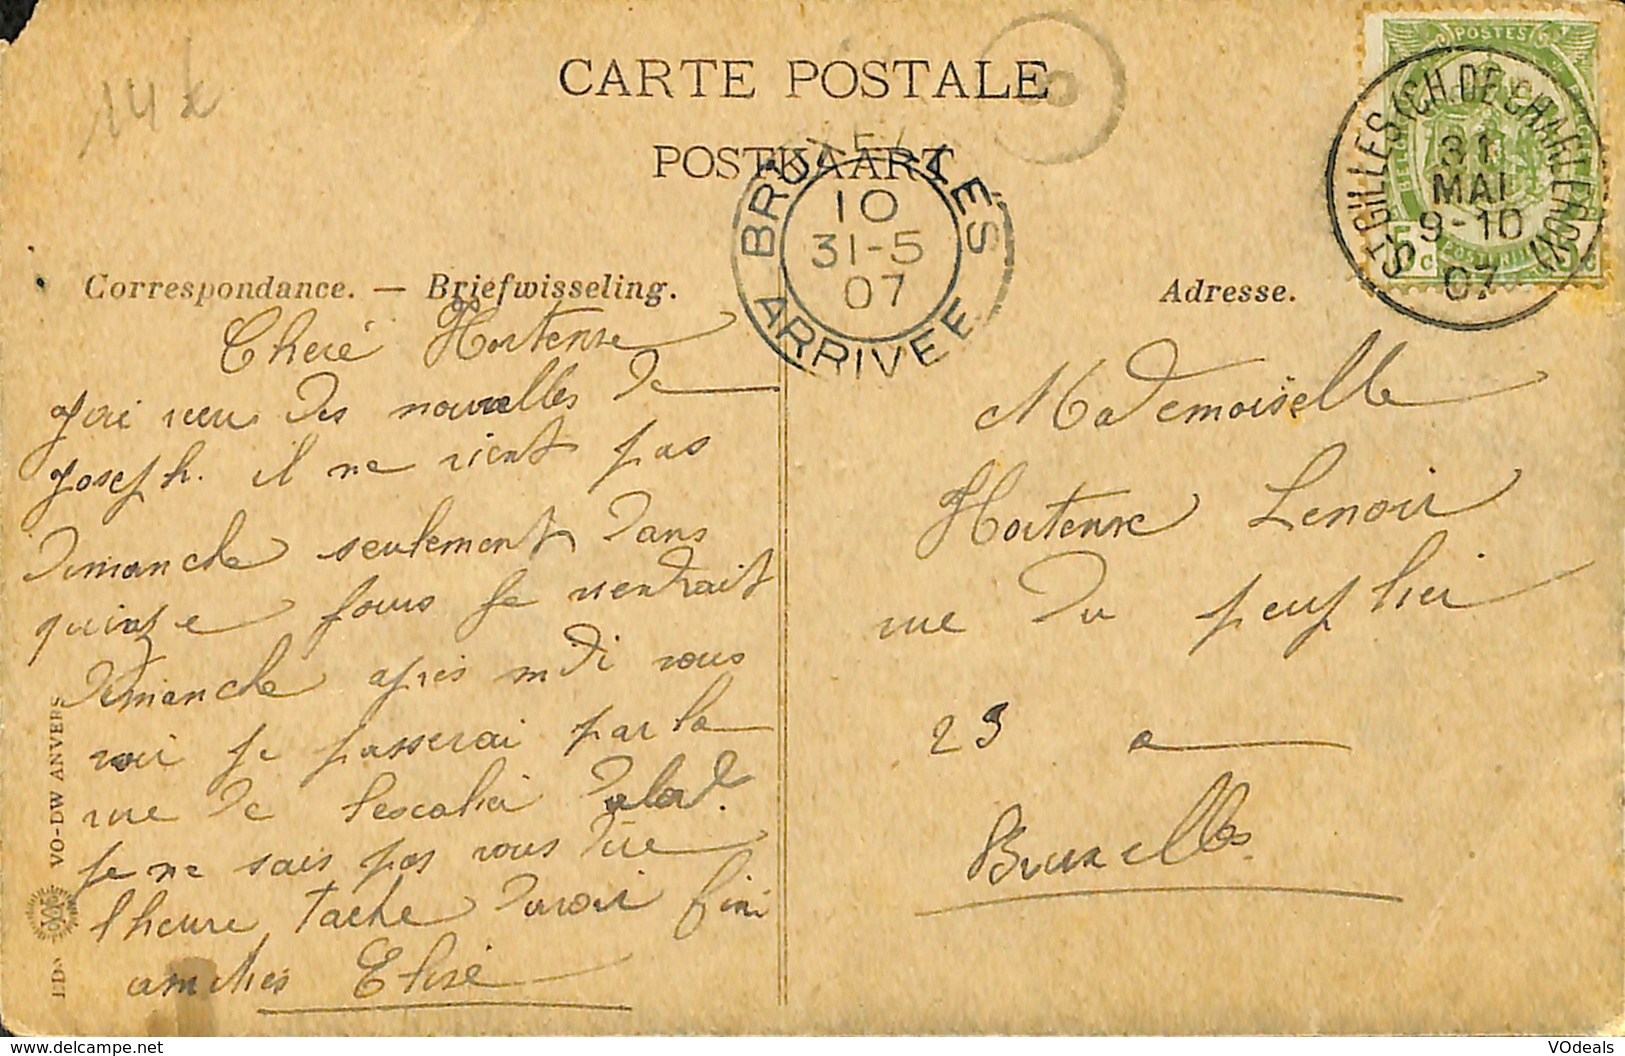 14
CARTE POSTALE
POSTKAART
BRUXELLES
10
31-5
07
ARRIVEE
POSTES
BELGIQUE
5c
5c
ST GILLES (CH. DE CHARLEROI)
31
MAI
9-10
07
Correspondance. — Briefwisseling.
Adresse.
Cheré Hortense
J'ai reeu des nouvelles de
Joseph. il ne vient pas
Dimanche seulement dans
quinze jours Je viendrait
Dimanche apres midi vous
voir je passerai par la
rue de lescalier
Je ne sais pas vous dire
lheure tache davoir fini
amities Elise
Mademoiselle
Hortense Lenoir
rue du peuplier
23 a
Bruxelles
EDn VO-DW ANVERS
delcampe.net
VOdeals